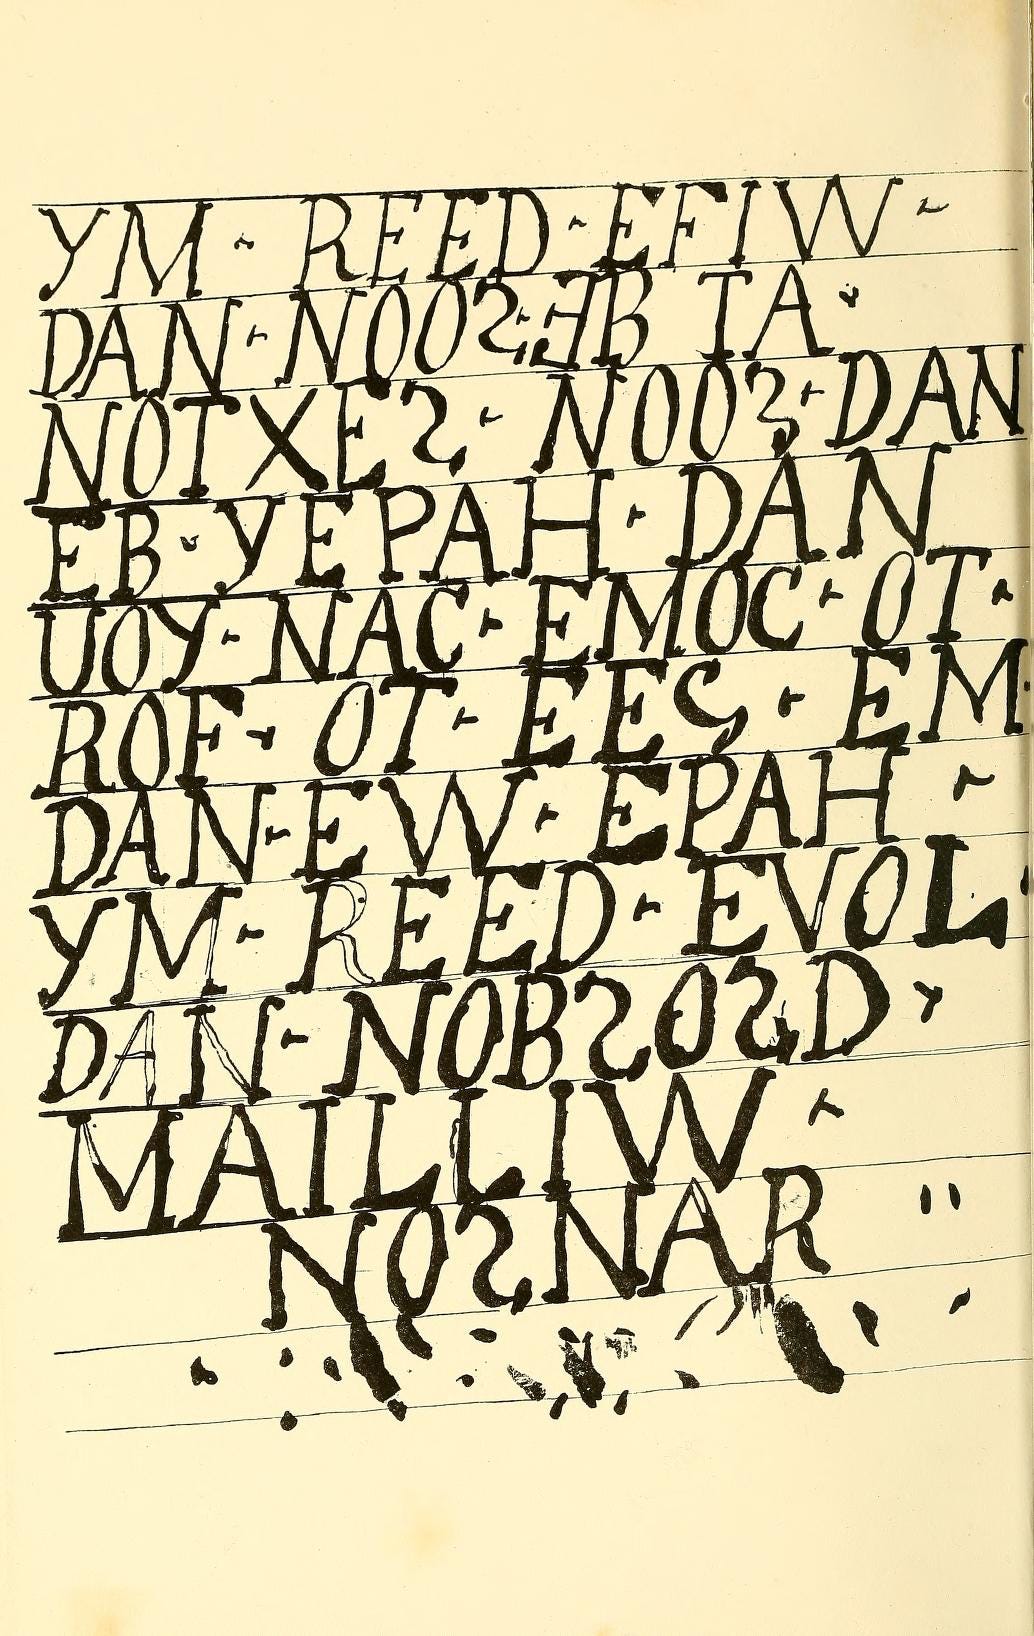 YM · REED · EFIW ·
DAN · NOOS · EB TA ·
NOTXES · NOOS · DAN
EB · YEPAH · DAN
UOY · NAC · EMOC · OT ·
ROF · OT · EES · EM ·
DAN · EW · EPAH ·
YM · REED · EVOL
DAN · NOBSOSD
MAILLIW ·
NOSNAR "